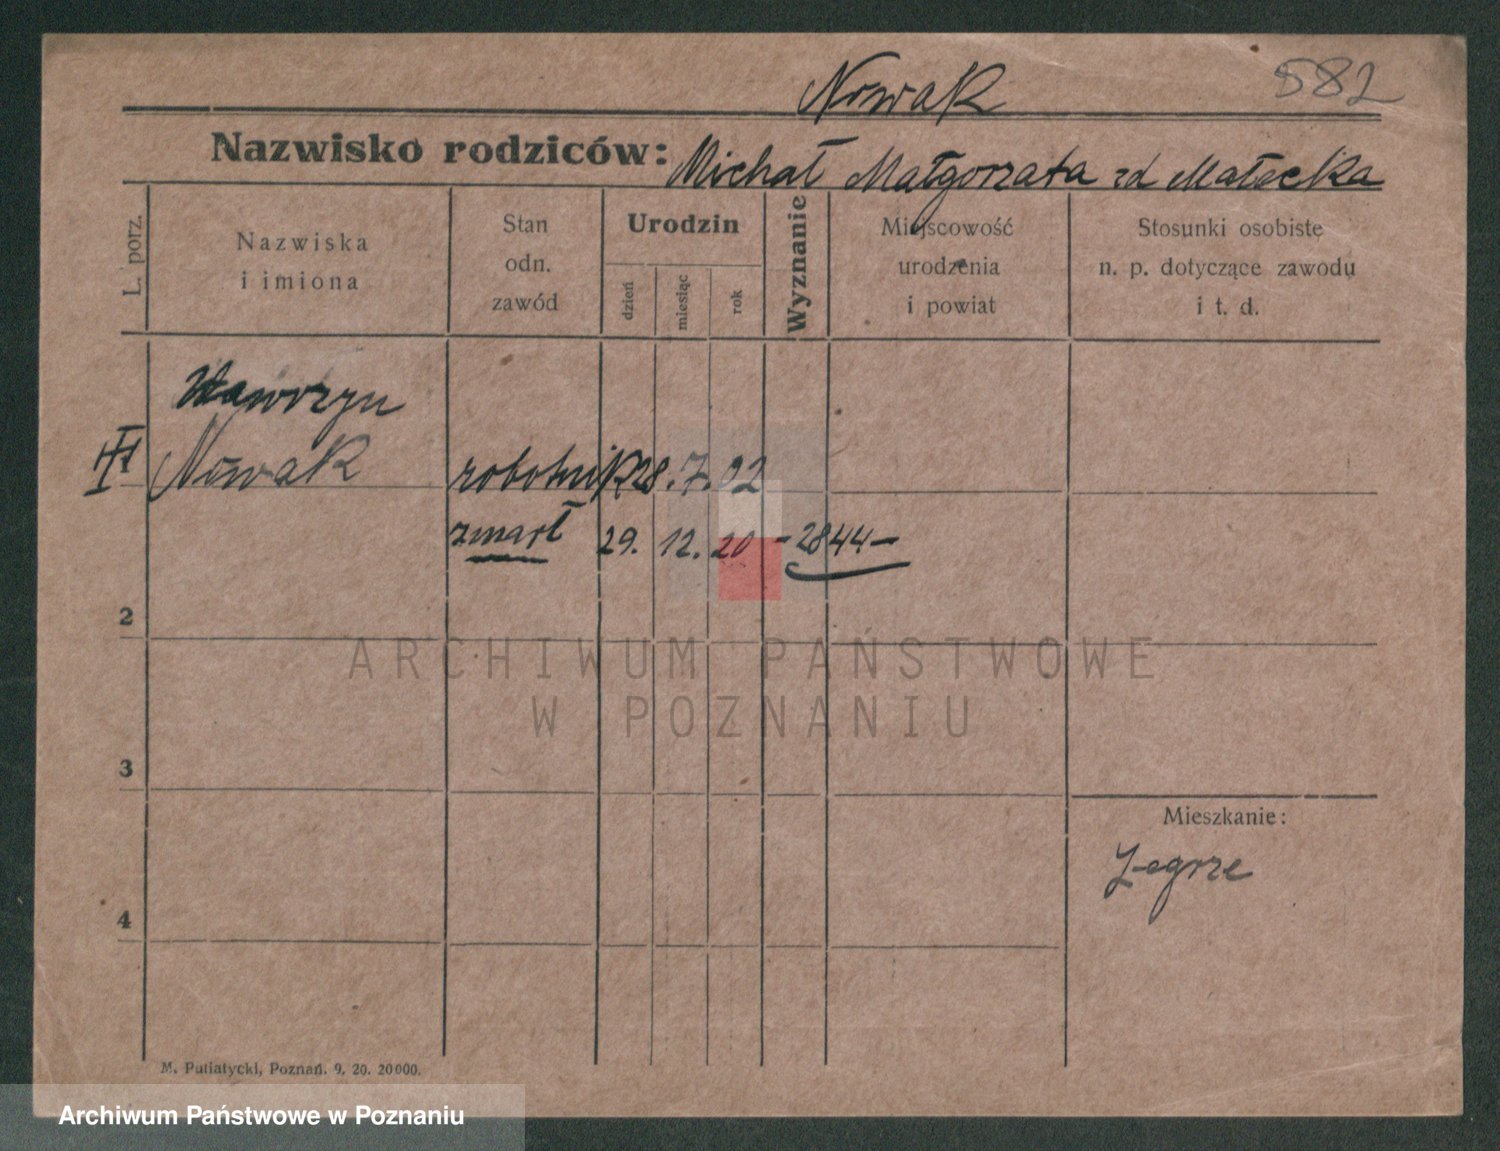 582
Nowak
Nazwisko rodziców: Michał Małgorzata zd Małecka
L. porz.
Nazwiska
i imiona
Stan
odn.
zawód
Urodzin
dzień
miesiąc
rok
Wyznanie
Miejscowość
urodzenia
i powiat
Stosunki osobiste
n. p. dotyczące zawodu
i t. d.
Wawrzyn
Nowak robotnik 28. 7. 02
zmarł 29. 12. 20 -2844-
2
3
4
Mieszkanie:
Zegrze
ARCHIWUM PAŃSTWOWE
W POZNANIU
M. Putiatycki, Poznań. 9. 20. 20000.
Archiwum Państwowe w Poznaniu